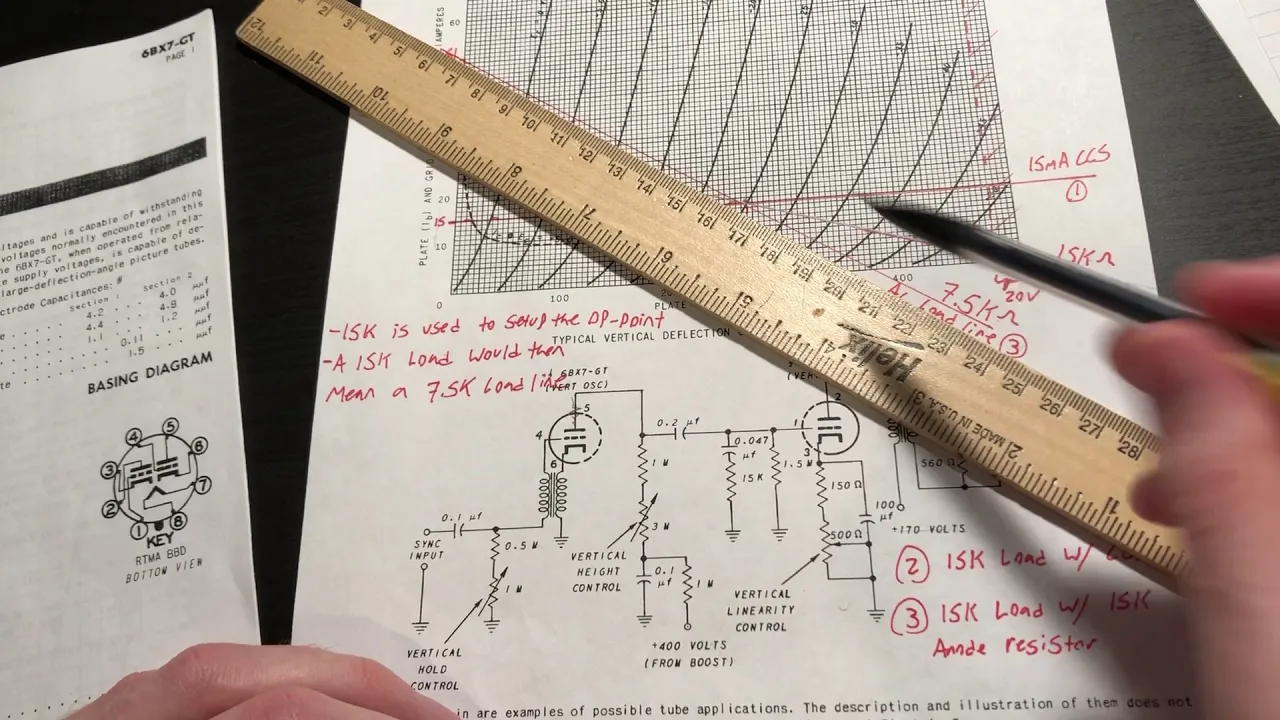 6BX7-GT
PAGE 1
ltages and is capable of withstanding
voltages normally encountered in this
he 6BX7-GT, when operated from rela-
supply voltages, is capable of de-
large-deflection-angle picture tubes.
ctrode Capacitances: #
section 1 section 2
4.2 4.0 μμf
4.4 4.8 μμf
1.1 1.2 μμf
0.11 μμf
1.5 μμf
BASING DIAGRAM
4 5
3 6
2 7
1 8
KEY
RTMA BBD
BOTTOM VIEW
60
20
15
10
0
100
400
PLATE (Ib) AND GRID
AMPERES
PLATE
15mA CCS
1
15KΩ
20V
7.5KΩ
AC loadline 3
-15K is used to setup the OP-point
-A 15K Load would then
Mean a 7.5K Load line
TYPICAL VERTICAL DEFLECTION
6BX7-GT
(VERT OSC)
(VER
4 5 6
0.2 μf
1 2 3
0.047 μf
1 M
15 K
1.5 M
150 Ω
100 μf
560 Ω
+170 VOLTS
0.1 μf
SYNC INPUT
0.5 M
1 M
3 M
500 Ω
VERTICAL HEIGHT CONTROL
0.1 μf
1 M
VERTICAL LINEARITY CONTROL
+400 VOLTS
(FROM BOOST)
VERTICAL HOLD CONTROL
2 15K Load w/
3 15K Load w/ 15K
Anode resistor
in are examples of possible tube applications. The description and illustration of them does not
Helix
MADE IN U.S.A.
2 3 4 5 6 7 8 9 10 11 12 13 14 15 16 17 18 19 20 21 22 23 24 25 26 27 28
12 11 10 9 8 7 6 5 4 3 2 1